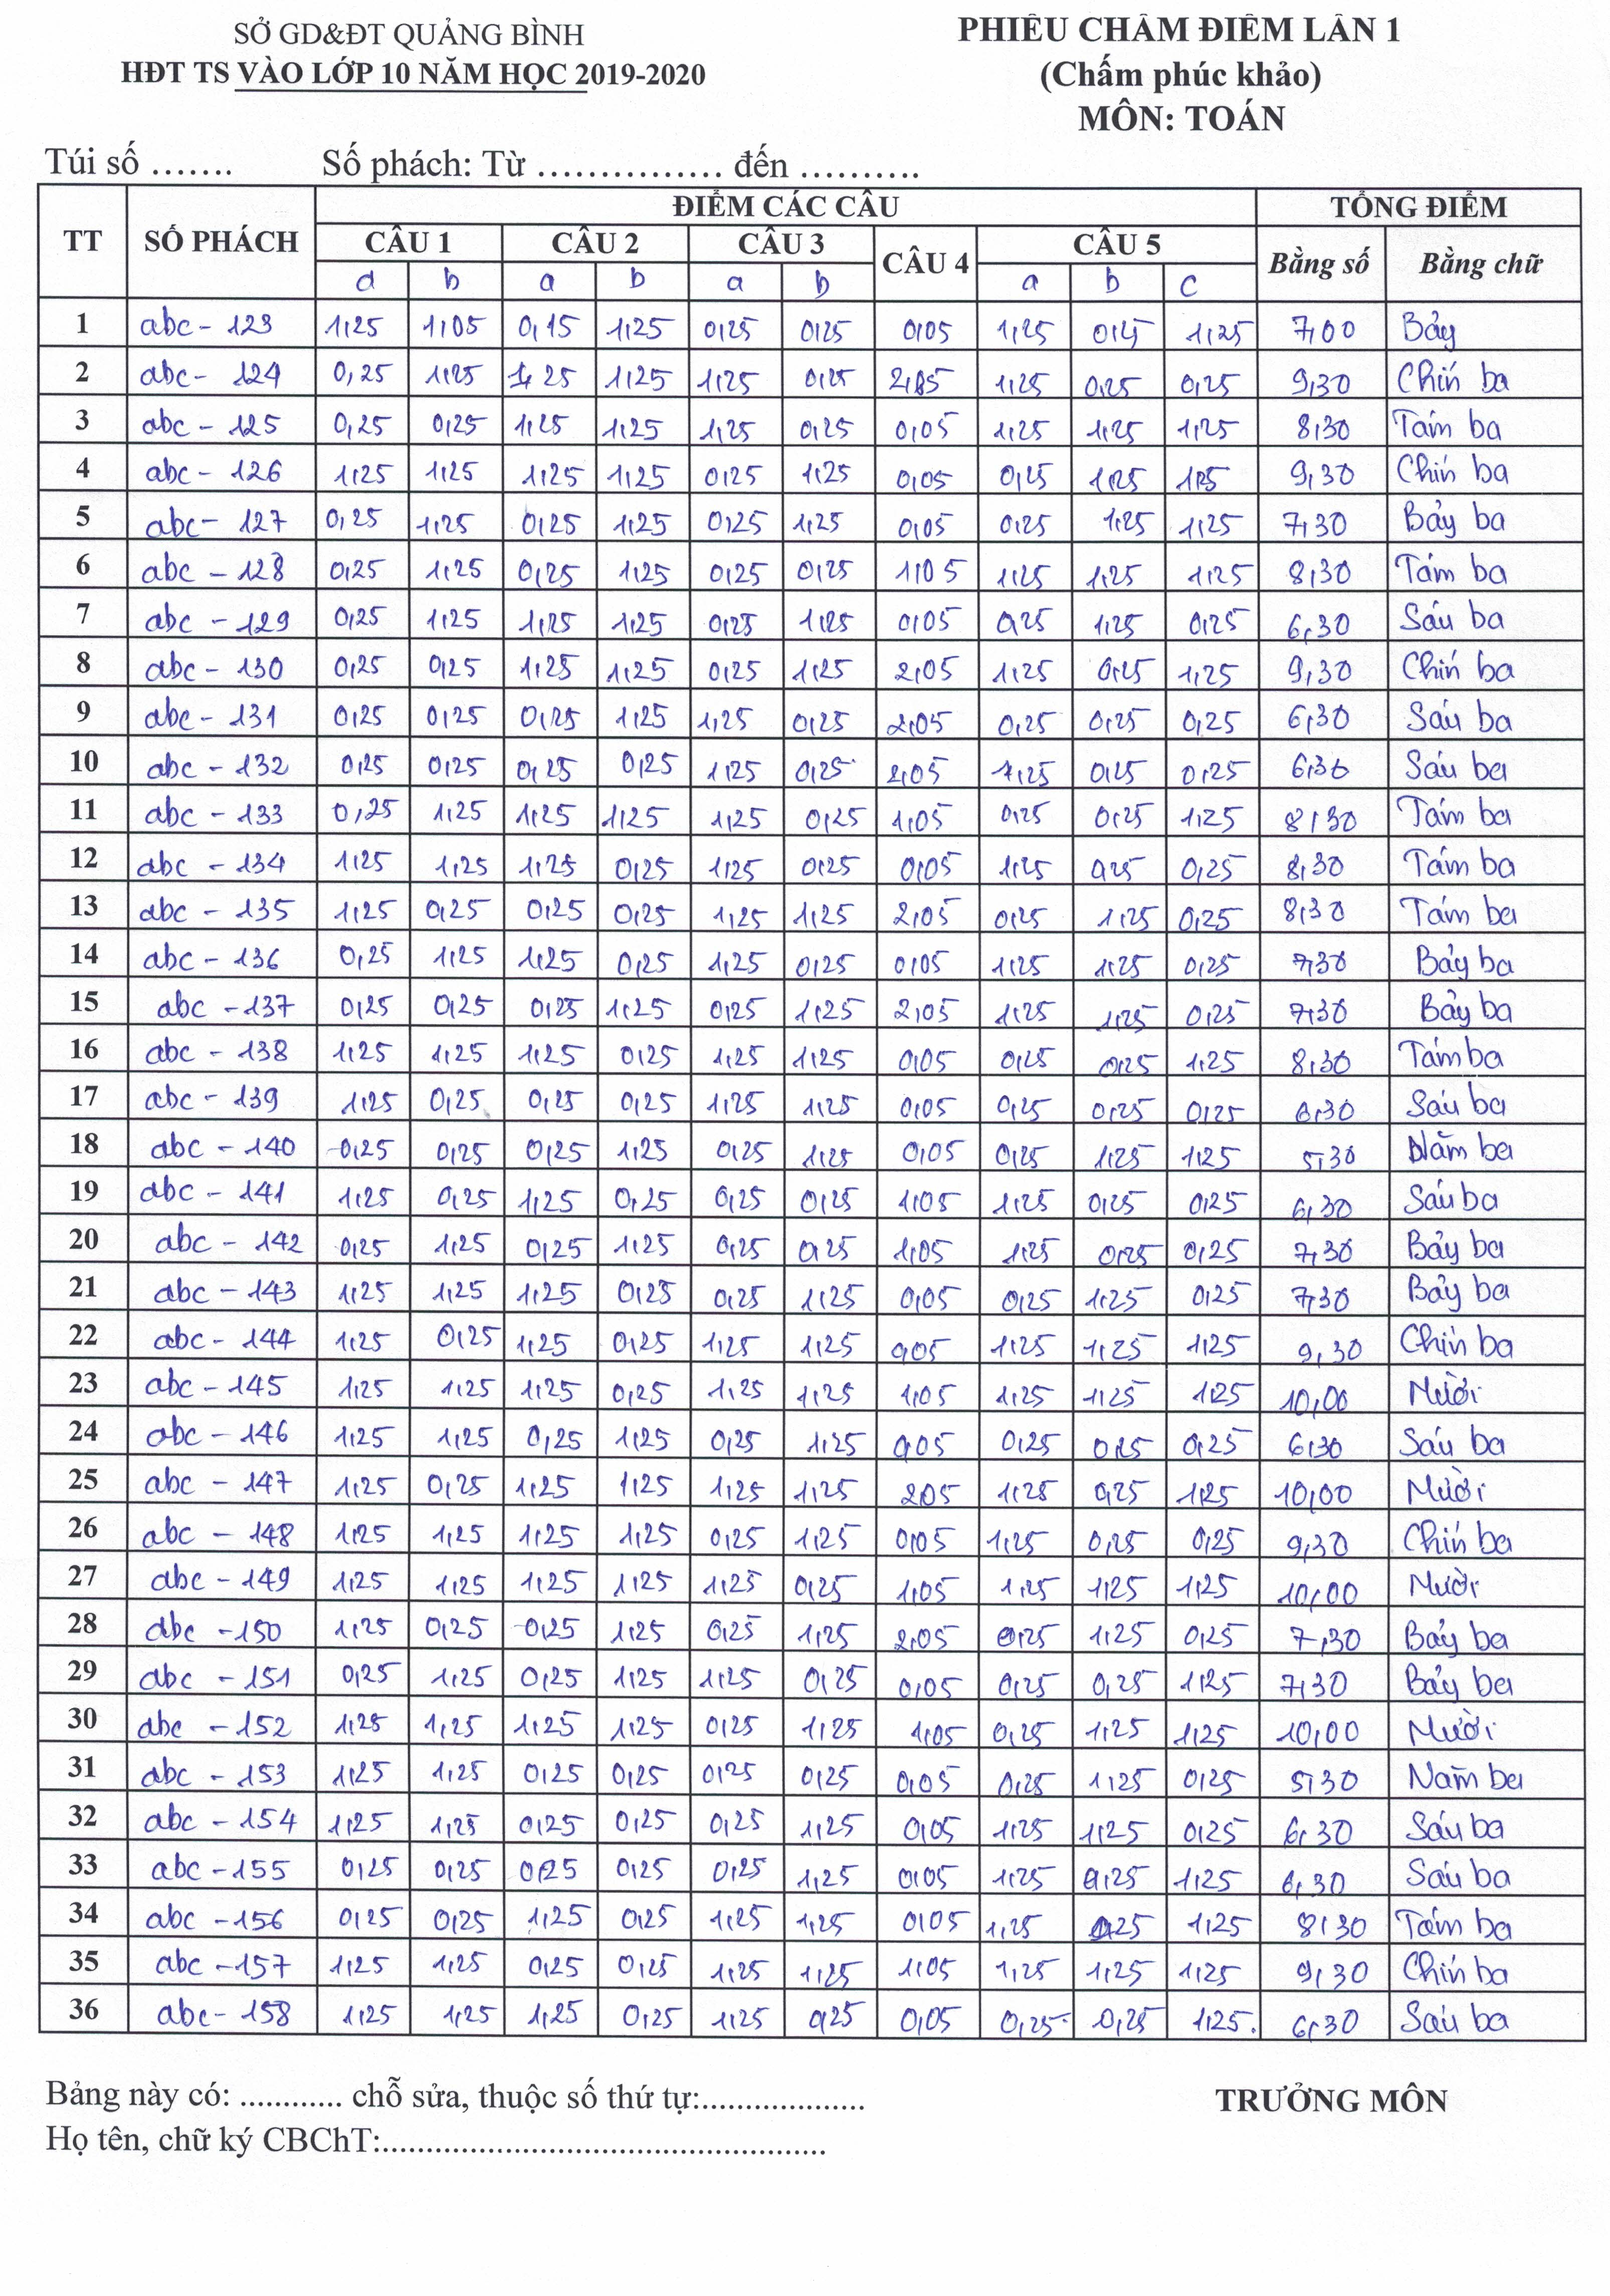 SỞ GD&ĐT QUẢNG BÌNH
HĐT TS VÀO LỚP 10 NĂM HỌC 2019-2020
PHIẾU CHẤM ĐIỂM LẦN 1
(Chấm phúc khảo)
MÔN: TOÁN
Túi số ....... Số phách: Từ ............... đến ..........
TT SỐ PHÁCH ĐIỂM CÁC CÂU TỔNG ĐIỂM
CÂU 1 CÂU 2 CÂU 3 CÂU 4 CÂU 5 Bằng số Bằng chữ
a b a b a b a b c
1 abc - 123 1,25 1,05 0,15 1,25 0,25 0,25 0,05 1,25 1,25 7,00 Bảy
2 abc - 124 0,25 1,25 1,25 1,25 1,25 0,25 2,05 1,25 0,25 0,25 9,30 Chín ba
3 abc - 125 0,25 0,25 1,25 1,25 1,25 0,25 0,05 1,25 1,25 1,25 8,30 Tám ba
4 abc - 126 1,25 1,25 1,25 1,25 0,25 1,25 0,05 0,25 1,25 1,25 9,30 Chín ba
5 abc - 127 0,25 1,25 0,25 1,25 0,25 1,25 0,05 0,25 1,25 1,25 7,30 Bảy ba
6 abc - 128 0,25 1,25 0,25 1,25 0,25 0,25 1,05 1,25 1,25 1,25 8,30 Tám ba
7 abc - 129 0,25 1,25 1,25 1,25 0,25 1,25 0,05 0,25 1,25 0,25 6,30 Sáu ba
8 abc - 130 0,25 0,25 1,25 1,25 0,25 1,25 2,05 1,25 0,25 1,25 9,30 Chín ba
9 abc - 131 0,25 0,25 0,25 1,25 1,25 0,25 2,05 0,25 0,25 0,25 6,30 Sáu ba
10 abc - 132 0,25 0,25 0,25 0,25 1,25 0,25 2,05 1,25 0,25 0,25 6,30 Sáu ba
11 abc - 133 0,25 1,25 1,25 1,25 1,25 0,25 1,05 0,25 0,25 1,25 8,30 Tám ba
12 abc - 134 1,25 1,25 1,25 0,25 1,25 0,25 0,05 1,25 0,25 0,25 8,30 Tám ba
13 abc - 135 1,25 0,25 0,25 0,25 1,25 1,25 2,05 0,25 1,25 0,25 8,30 Tám ba
14 abc - 136 0,25 1,25 1,25 0,25 1,25 0,25 0,05 1,25 1,25 0,25 7,30 Bảy ba
15 abc - 137 0,25 0,25 0,25 1,25 0,25 1,25 2,05 1,25 1,25 0,25 7,30 Bảy ba
16 abc - 138 1,25 1,25 1,25 0,25 1,25 1,25 0,05 0,25 0,25 1,25 8,30 Tám ba
17 abc - 139 1,25 0,25 0,25 0,25 1,25 1,25 0,05 0,25 0,25 0,25 6,30 Sáu ba
18 abc - 140 0,25 0,25 0,25 1,25 0,25 1,25 0,05 0,25 1,25 1,25 5,30 Năm ba
19 abc - 141 1,25 0,25 1,25 0,25 0,25 0,25 1,05 1,25 0,25 0,25 6,30 Sáu ba
20 abc - 142 0,25 1,25 0,25 1,25 0,25 0,25 1,05 1,25 0,25 0,25 7,30 Bảy ba
21 abc - 143 1,25 1,25 1,25 0,25 0,25 1,25 0,05 0,25 1,25 0,25 7,30 Bảy ba
22 abc - 144 1,25 0,25 1,25 0,25 1,25 1,25 0,05 1,25 1,25 1,25 9,30 Chín ba
23 abc - 145 1,25 1,25 1,25 0,25 1,25 1,25 1,05 1,25 1,25 1,25 10,00 Mười
24 abc - 146 1,25 1,25 0,25 1,25 0,25 1,25 0,05 0,25 0,25 0,25 6,30 Sáu ba
25 abc - 147 1,25 0,25 1,25 1,25 1,25 1,25 2,05 1,25 0,25 1,25 10,00 Mười
26 abc - 148 1,25 1,25 1,25 1,25 0,25 1,25 0,05 1,25 0,25 0,25 9,30 Chín ba
27 abc - 149 1,25 1,25 1,25 1,25 1,25 0,25 1,05 1,25 1,25 1,25 10,00 Mười
28 abc - 150 1,25 0,25 0,25 1,25 0,25 1,25 2,05 0,25 1,25 0,25 7,30 Bảy ba
29 abc - 151 0,25 1,25 0,25 1,25 1,25 0,25 0,05 0,25 0,25 1,25 7,30 Bảy ba
30 abc - 152 1,25 1,25 1,25 1,25 0,25 1,25 1,05 0,25 1,25 1,25 10,00 Mười
31 abc - 153 1,25 1,25 0,25 0,25 0,25 0,25 0,05 0,25 1,25 0,25 5,30 Năm ba
32 abc - 154 1,25 1,25 0,25 0,25 0,25 1,25 0,05 1,25 1,25 0,25 6,30 Sáu ba
33 abc - 155 0,25 0,25 0,25 0,25 0,25 1,25 0,05 1,25 0,25 1,25 6,30 Sáu ba
34 abc - 156 0,25 0,25 1,25 0,25 1,25 1,25 0,05 1,25 0,25 1,25 8,30 Tám ba
35 abc - 157 1,25 1,25 0,25 0,25 1,25 1,25 1,05 1,25 1,25 1,25 9,30 Chín ba
36 abc - 158 1,25 1,25 1,25 0,25 1,25 0,25 0,05 0,25 0,25 1,25 6,30 Sáu ba
Bảng này có: ............ chỗ sửa, thuộc số thứ tự:...................
TRƯỞNG MÔN
Họ tên, chữ ký CBChT:....................................................